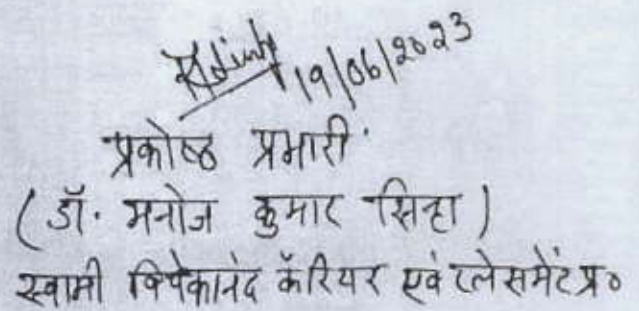 19/06/2023
प्रकोष्ठ प्रभारी
(डॉ. मनोज कुमार सिन्हा)
स्वामी विवेकानंद कॅरियर एवं प्लेसमेंट प्र०